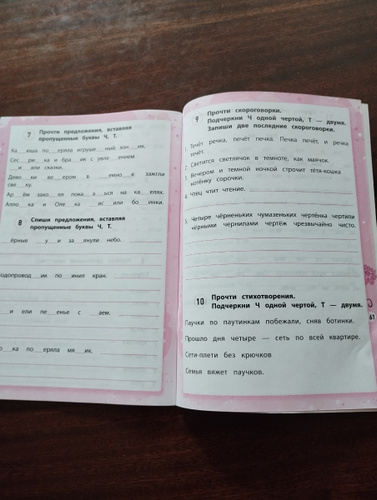 7 Прочти предложения, вставляя
пропущенные буквы Ч, Т.
Ка юша по еряла игруше ный
Сес ри ка и бра ик с увле ением
и али сказки.
ве ером в мно е зажгли
све ку.
Ар ём захо ел пока а ься на ка елях.
и Оле ка ис или бо инки.
8 Спиши предложения, вставляя
пропущенные буквы Ч, Т.
ёрные у и за янули небо.
одопровод ик по инил кран.
и ели пе енье с аем.
о ка по еряла мя ик.
9 Прочти скороговорки.
Подчеркни Ч одной чертой, Т — двумя.
Запиши две последние скороговорки.
1. Течёт речка, печёт печка. Печка печёт, и речка
течёт.
2. Светится светлячок в темноте, как маячок.
3. Вечером и темной ночкой строчит тётя-кошка
котёнку сорочки.
4. Чтец чтит чтение.
5. Четыре чёрненьких чумазеньких чертёнка чертили
чёрными чернилами чертёж чрезвычайно чисто.
10 Прочти стихотворения.
Подчеркни Ч одной чертой, Т — двумя.
Паучки по паутинкам побежали, сняв ботинки.
Прошло дня четыре — сеть по всей квартире.
Сети-плети без крючков
Семья вяжет паучков.
61